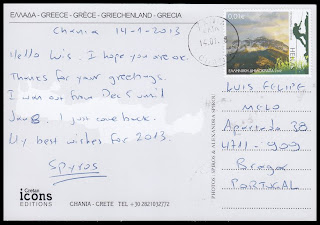 ΕΛΛΑΔΑ - GREECE - GRÈCE - GRIECHENLAND - GRECIA
Chania 14-1-2013
Hello Luis. I hope you are ok.
Thanks for your greetings.
I was out from Dec 5 until
Jan 8. I just come back.
My best wishes for 2013.
Spyros
Cretan
icons
EDITIONS
CHANIA - CRETE TEL +30 2821032772
PHOTOS: SPIROS & ALEXANDRA SPIROU
0,01€
ΕΛΛΗΝΙΚΗ ΔΗΜΟΚΡΑΤΙΑ
LUIS FELIPE
MELO
Apartado 38
4711-909
Braga
PORTUGAL